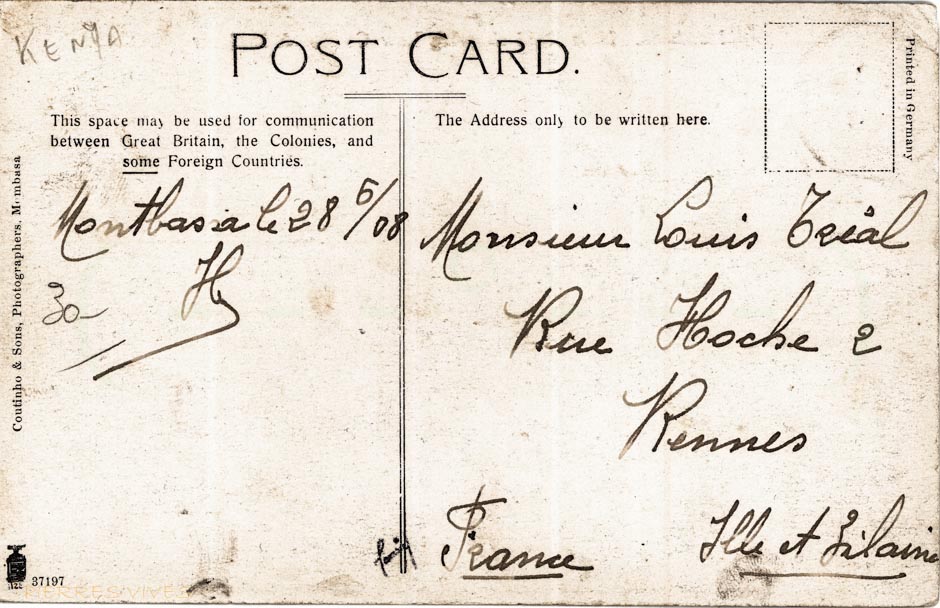 KENYA
POST CARD.
Printed in Germany
This space may be used for communication
between Great Britain, the Colonies, and
some Foreign Countries.
The Address only to be written here.
Coutinho & Sons, Photographers. Mombasa
Montbasa le 28 6/08
H
30-
Monsieur Louis Tréal
Rue Hoche 2
Rennes
France
Ille et Vilaine
37197
PIERRES VIVES